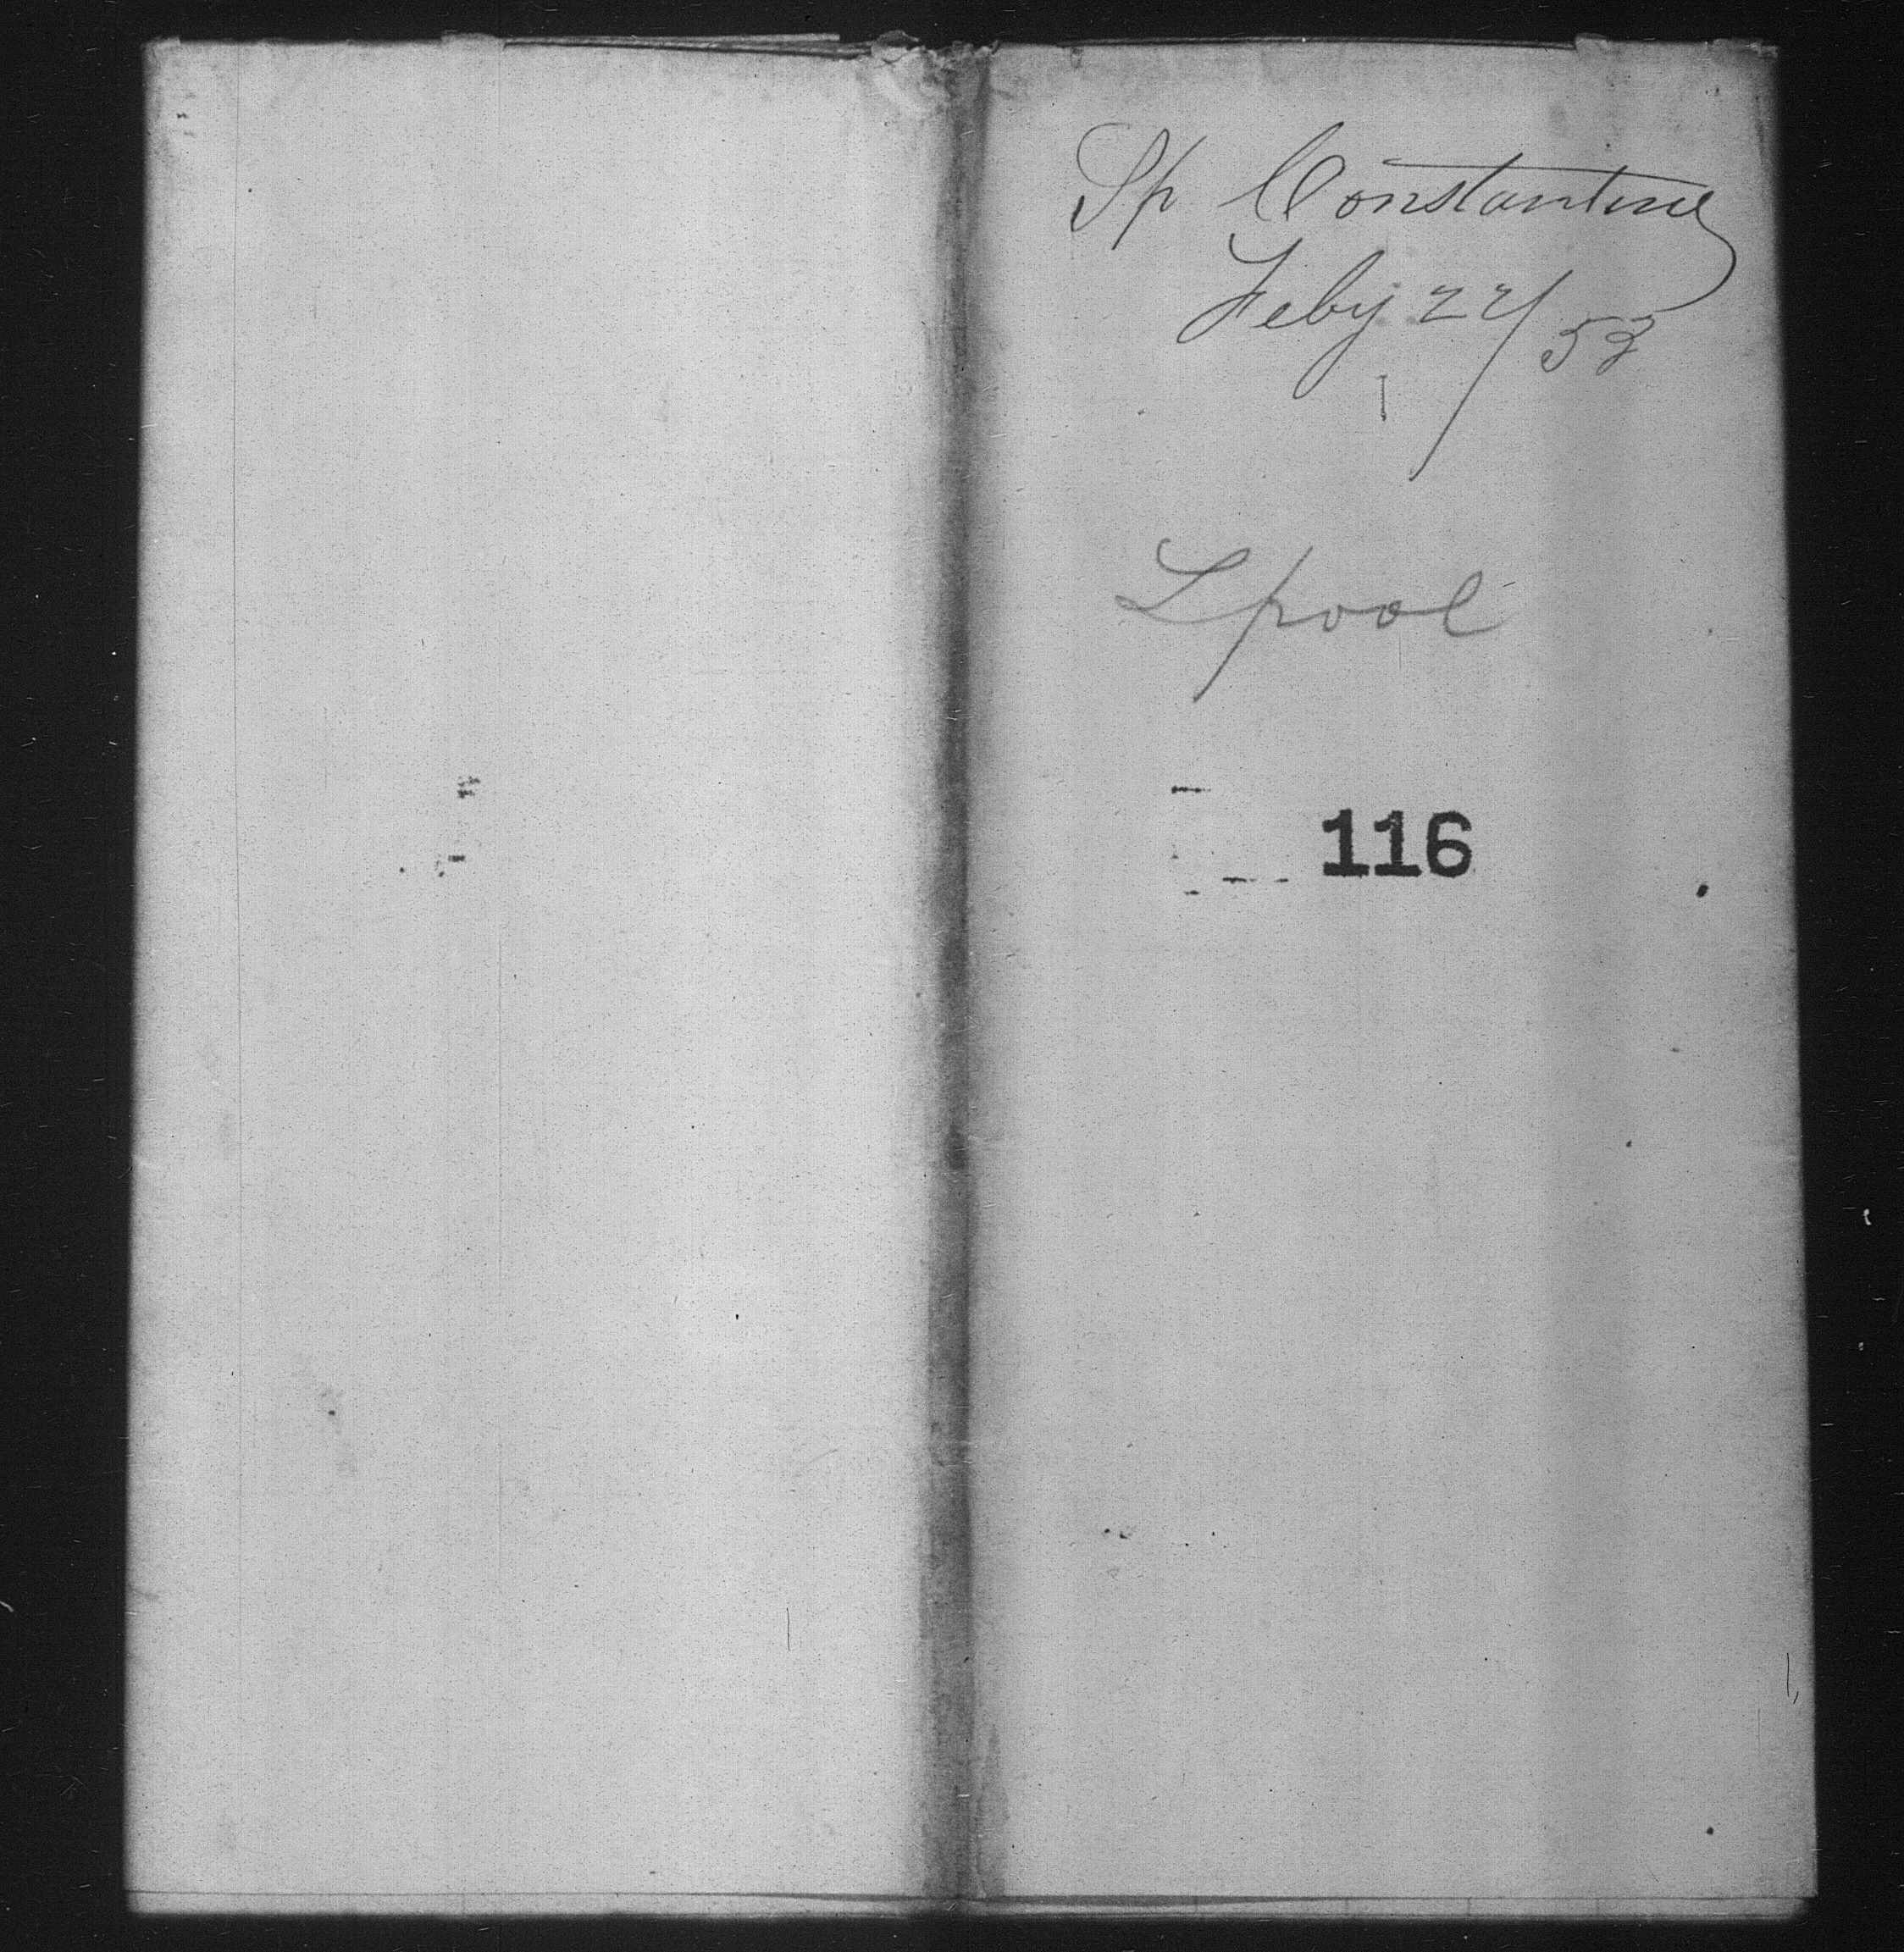 Sp Constantine
Feby 22/53
Lpool
116